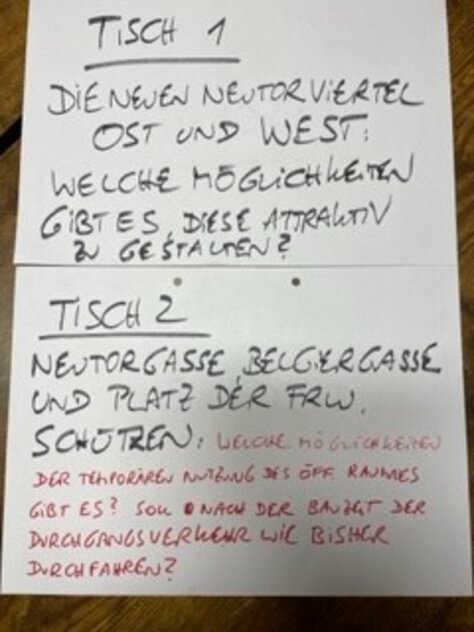 TISCH 1
DIE NEUEN NEUTORVIERTEL
OST UND WEST:
WELCHE MÖGLICHKEITEN
GIBT ES, DIESE ATTRAKTIV
ZU GESTALTEN?
TISCH 2
NEUTORGASSE, BELGIERGASSE
UND PLATZ DER FRW.
SCHÜTZEN: WELCHE MÖGLICHKEITEN
DER TEMPORÄREN NUTZUNG DES ÖFF. RAUMES
GIBT ES? SOLL NACH DER BAUZEIT DER
DURCHGANGSVERKEHR WIE BISHER
DURCHFAHREN?